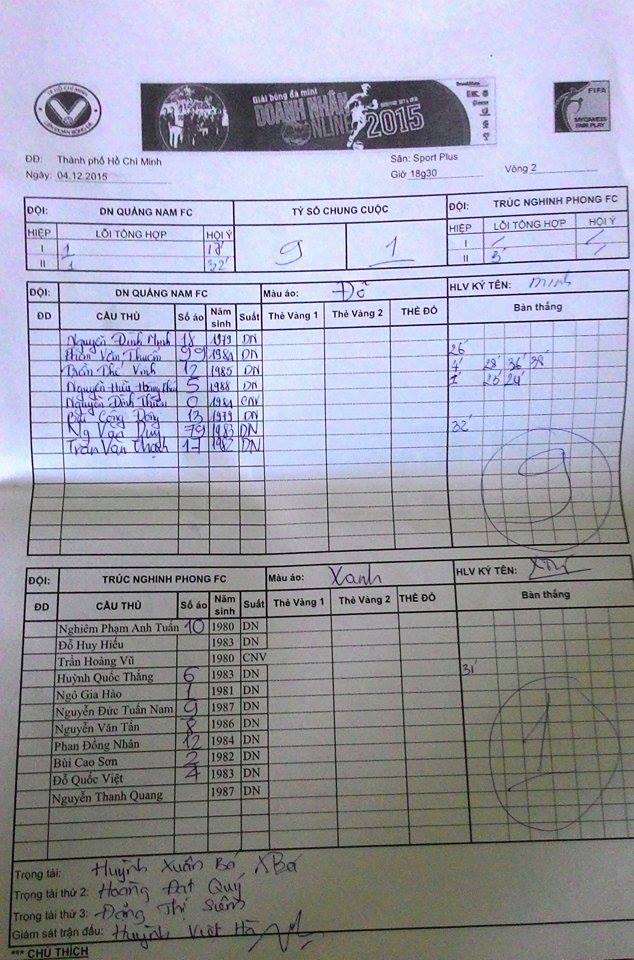 Giải bóng đá mini
DOANH NHÂN
ONLINE 2015
FIFA
MY GAME IS
FAIR PLAY
ĐĐ: Thành phố Hồ Chí Minh Sân: Sport Plus
Ngày: 04.12.2015 Giờ 18g30 Vòng 2
ĐỘI: DN QUẢNG NAM FC TỶ SỐ CHUNG CUỘC ĐỘI: TRÚC NGHINH PHONG FC
HIỆP LỖI TỔNG HỢP HỘI Ý 9 1 HIỆP LỖI TỔNG HỢP HỘI Ý
I 1 18' I
II 1 32' II 3'
ĐỘI: DN QUẢNG NAM FC Màu áo: Đỏ HLV KÝ TÊN: minh
ĐD CẦU THỦ Số áo Năm sinh Suất Thẻ Vàng 1 Thẻ Vàng 2 THẺ ĐỎ Bàn thắng
Nguyễn Đình Minh 18 1979 DN
Phạm Văn Thuấn 99 1984 DN 26'
Trần Thế Vinh 12 1985 DN 4' 28' 36' 38'
Nguyễn Hữu Hoàng 5 1988 DN 1' 23' 24'
Nguyễn Đình 0 1984 CNV
Bùi Công Đông 13 1979 DN
Ng Văn Duy 79 1983 DN 32'
Trần Văn Thạnh 17 1982 DN
9
ĐỘI: TRÚC NGHINH PHONG FC Màu áo: Xanh HLV KÝ TÊN:
ĐD CẦU THỦ Số áo Năm sinh Suất Thẻ Vàng 1 Thẻ Vàng 2 THẺ ĐỎ Bàn thắng
Nghiêm Phạm Anh Tuấn 10 1980 DN
Đỗ Huy Hiếu 1983 DN
Trần Hoàng Vũ 1980 CNV
Huỳnh Quốc Thắng 6 1983 DN 31'
Ngô Gia Hào 1 1981 DN
Nguyễn Đức Tuấn Nam 9 1987 DN
Nguyễn Văn Tần 8 1986 DN
Phan Đồng Nhân 12 1984 DN
Bùi Cao Sơn 2 1982 DN
Đỗ Quốc Việt 4 1983 DN
Nguyễn Thanh Quang 1987 DN
1
Trọng tài: Huỳnh Xuân Bá XBá
Trọng tài thứ 2: Hoàng Đạt Quý
Trọng tài thứ 3: Đặng Thị Siêm
Giám sát trận đấu: Huỳnh Việt Hà
*** CHÚ THÍCH